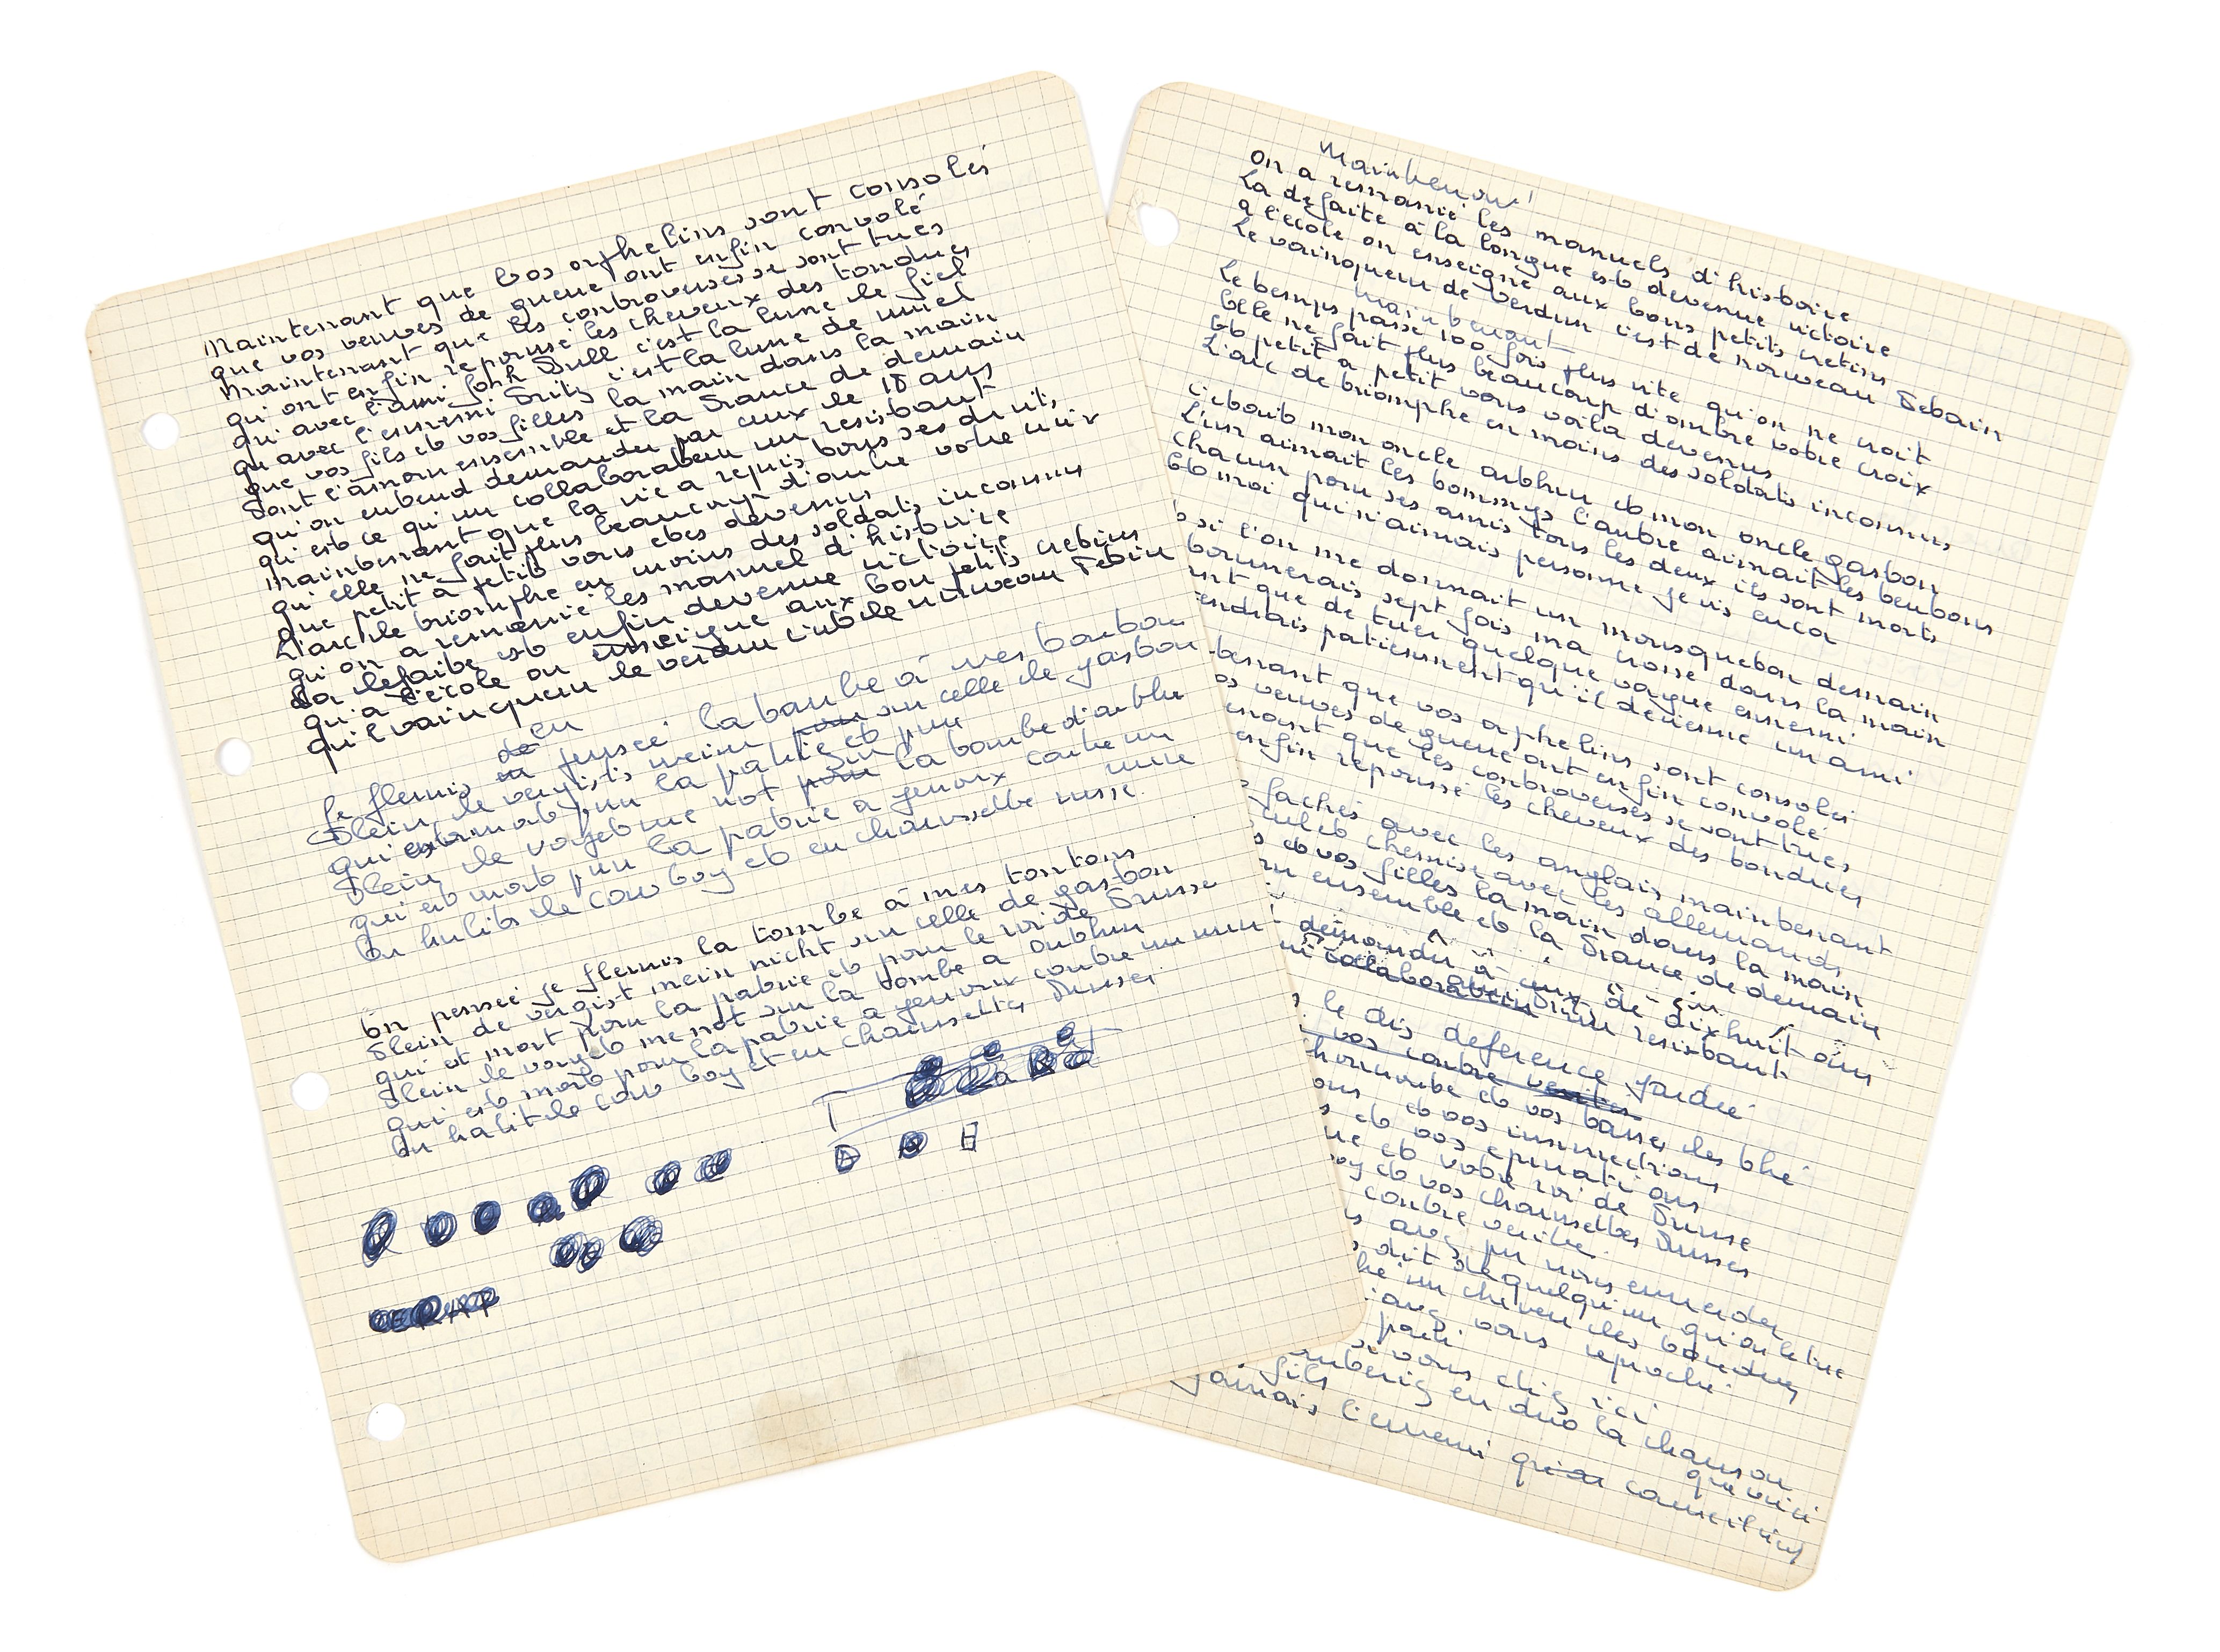 Maintenant que vos orphelins sont consolés
que vos veuves de guerre ont enfin convolé
Maintenant que les controverses se sont tues
qu'ont enfin repoussé les cheveux des tondues
qu'avec l'ami John Bull c'est la lune de fiel
qu'avec l'ennemi Fritz c'est la lune de miel
que vos fils et vos filles la main dans la main
Font l'amour ensemble et la France de demain
qu'on entend demander par ceux de 18 ans
qu'est ce qu'un collaborateur un resistant
Maintenant que la vie a repris tous ses droits
qu'elle ne fait plus beaucoup d'ombre votre croix
que petit a petit vous etes devenus
L'arc de triomphe en moins des soldats inconnus
qu'on a remanié les manuel d'histoire
La defaite est enfin devenue victoire
qu'a l'école on enseigne aux bon petits cretins
qu'l vainqueur de verdun c'est de nouveau Petain
de en
Je fleuris en pensée la tombe à mes tontons
Plein de vergists mein pour sur celle de gaston
qui est mort pour la patrie et pour
Plein de vogetme not pour sur la tombe d'arthur
qui est mort pour la patrie a genoux contre un
mur
En habits de cow boy et en chaussette russe
En pensée je fleuris la tombe à mes tontons
Plein de vergist mein nicht sur celle de gaston
qui et mort pour la patrie et pour le roi de Prusse
Plein de vorgets me not sur la tombe a Arthur
qui est mort pour la patrie a genoux contre un mur
En habit de cow boy et en chaussettes Russes
Maintenant
On a remanié les manuels d'histoire
La defaite à la longue est devenue victoire
A l'école on enseigne aux bons petits cretins
Le vainqueur de Verdun c'est de nouveau Petain
Maintenant
Le temps passe 100 fois plus vite qu'on ne croit
Elle ne fait plus beaucoup d'ombre votre croix
Et petit a petit vous voila devenus
L'arc de triomphe en moins des soldats inconnus
C'etait mon oncle arthur et mon oncle gaston
L'un aimait les tommys l'autre aimait les teutons
Chacun pour ses amis tous les deux ils sont morts
Et moi qui n'aimais personne je vis encor
si l'on me donnait un mousqueton demain
tournerais sept fois ma crosse dans la main
que de tuer quelque vague ennemi
patiemment qu'il devienne un ami
tenant que vos orphelins sont consolés
veuves de guerre ont enfin convolé
que les controverses se sont tues
enfin repoussé les cheveux des tondues
fachés avec les anglais maintenant
cul et chemise avec les allemands
et vos filles la main dans la main
ensemble et la France de demain
demander à ceux de dix huit ans
collaborateur un resistant
le dis deference gardée
vos contre verites
et vos taxes de thé
et vos insurections
et vos epurations
et votre roi de Prusse
et vos chaussettes Russes
contre verite
avez pu nous emmerder
dit de quelqu'un qu'on le tue
un cheveu des tondues
avez vous reproche
parti
si vous chez ici
en duo la chanson
fils que voici
jamais l'ennemi